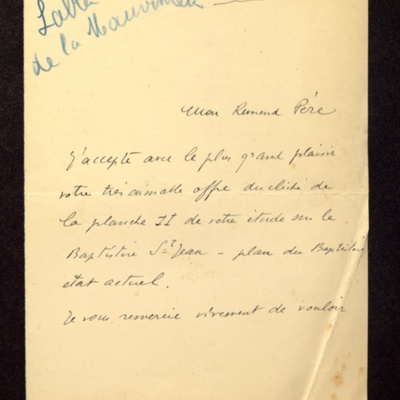 de la
Mon Reverend Père
J'accepte avec le plus grand plaisir
votre très aimable offre du cliché de
la planche II de votre étude sur le
Baptistère St Jean – plan du Baptistère
état actuel.
Je vous remercie vivement de vouloir